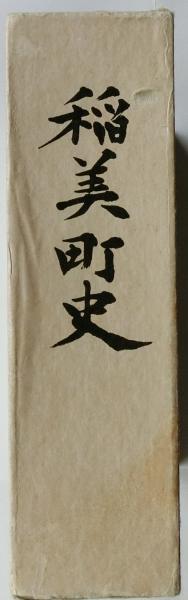 稲美町史